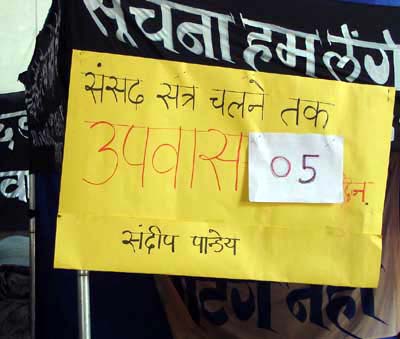 सूचना हम लेंगे
संसद सत्र चलने तक
उपवास 05 दिन
संदीप पान्डेय
नहीं